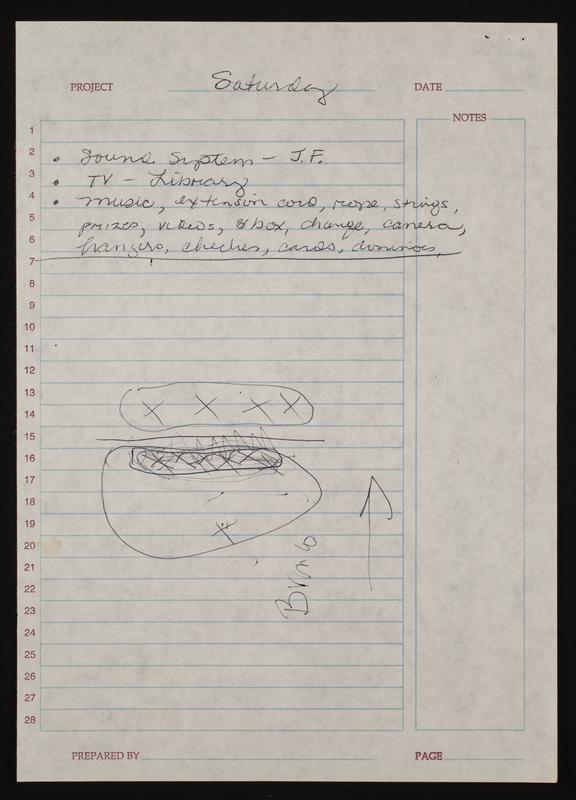 PROJECT Saturday DATE
NOTES
1
2 • Sound System - J.F.
3 • TV - Library
4 • Music, extension cord, rope, strings,
5 prizes, videos, box, change, camera,
6 hangers, checkers, cards, dominoes,
7
8
9
10
11
12
13
14 X X X X
15
16 X X X X X
17
18
19 X
20
21
22
23
24
25
26
27
28
PREPARED BY PAGE